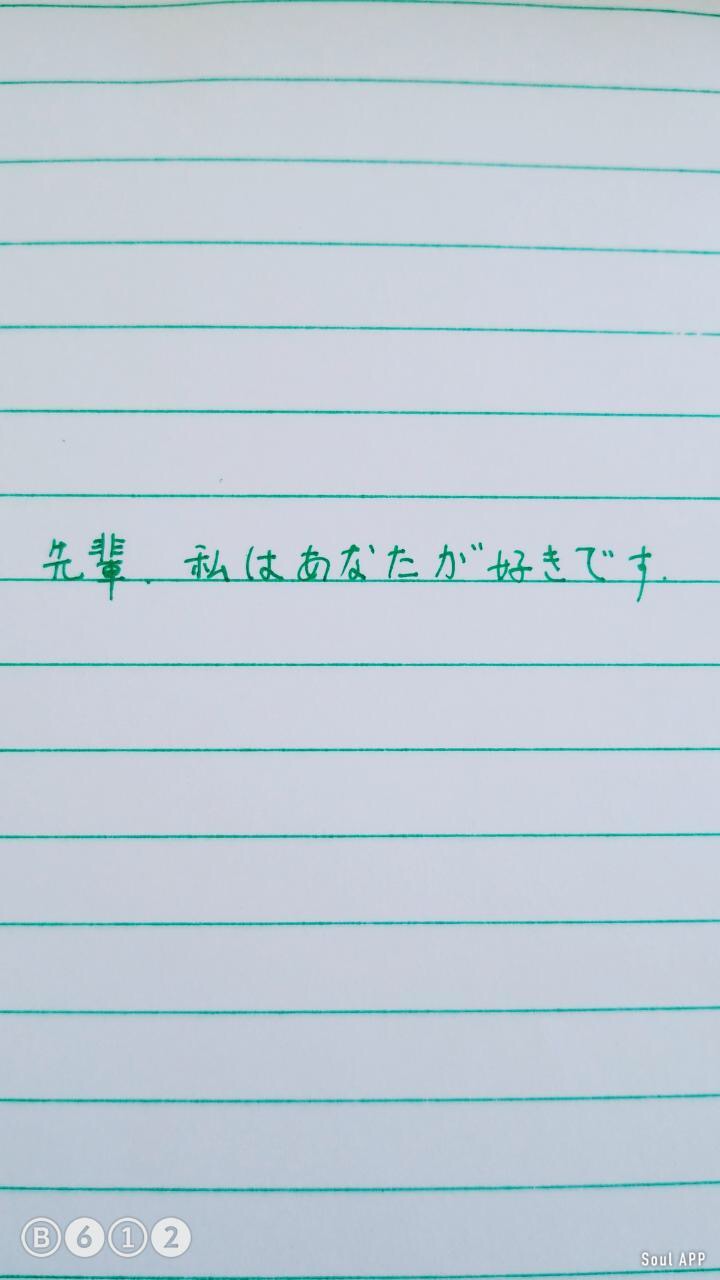 先輩.私はあなたが好きです.
B612
Soul APP